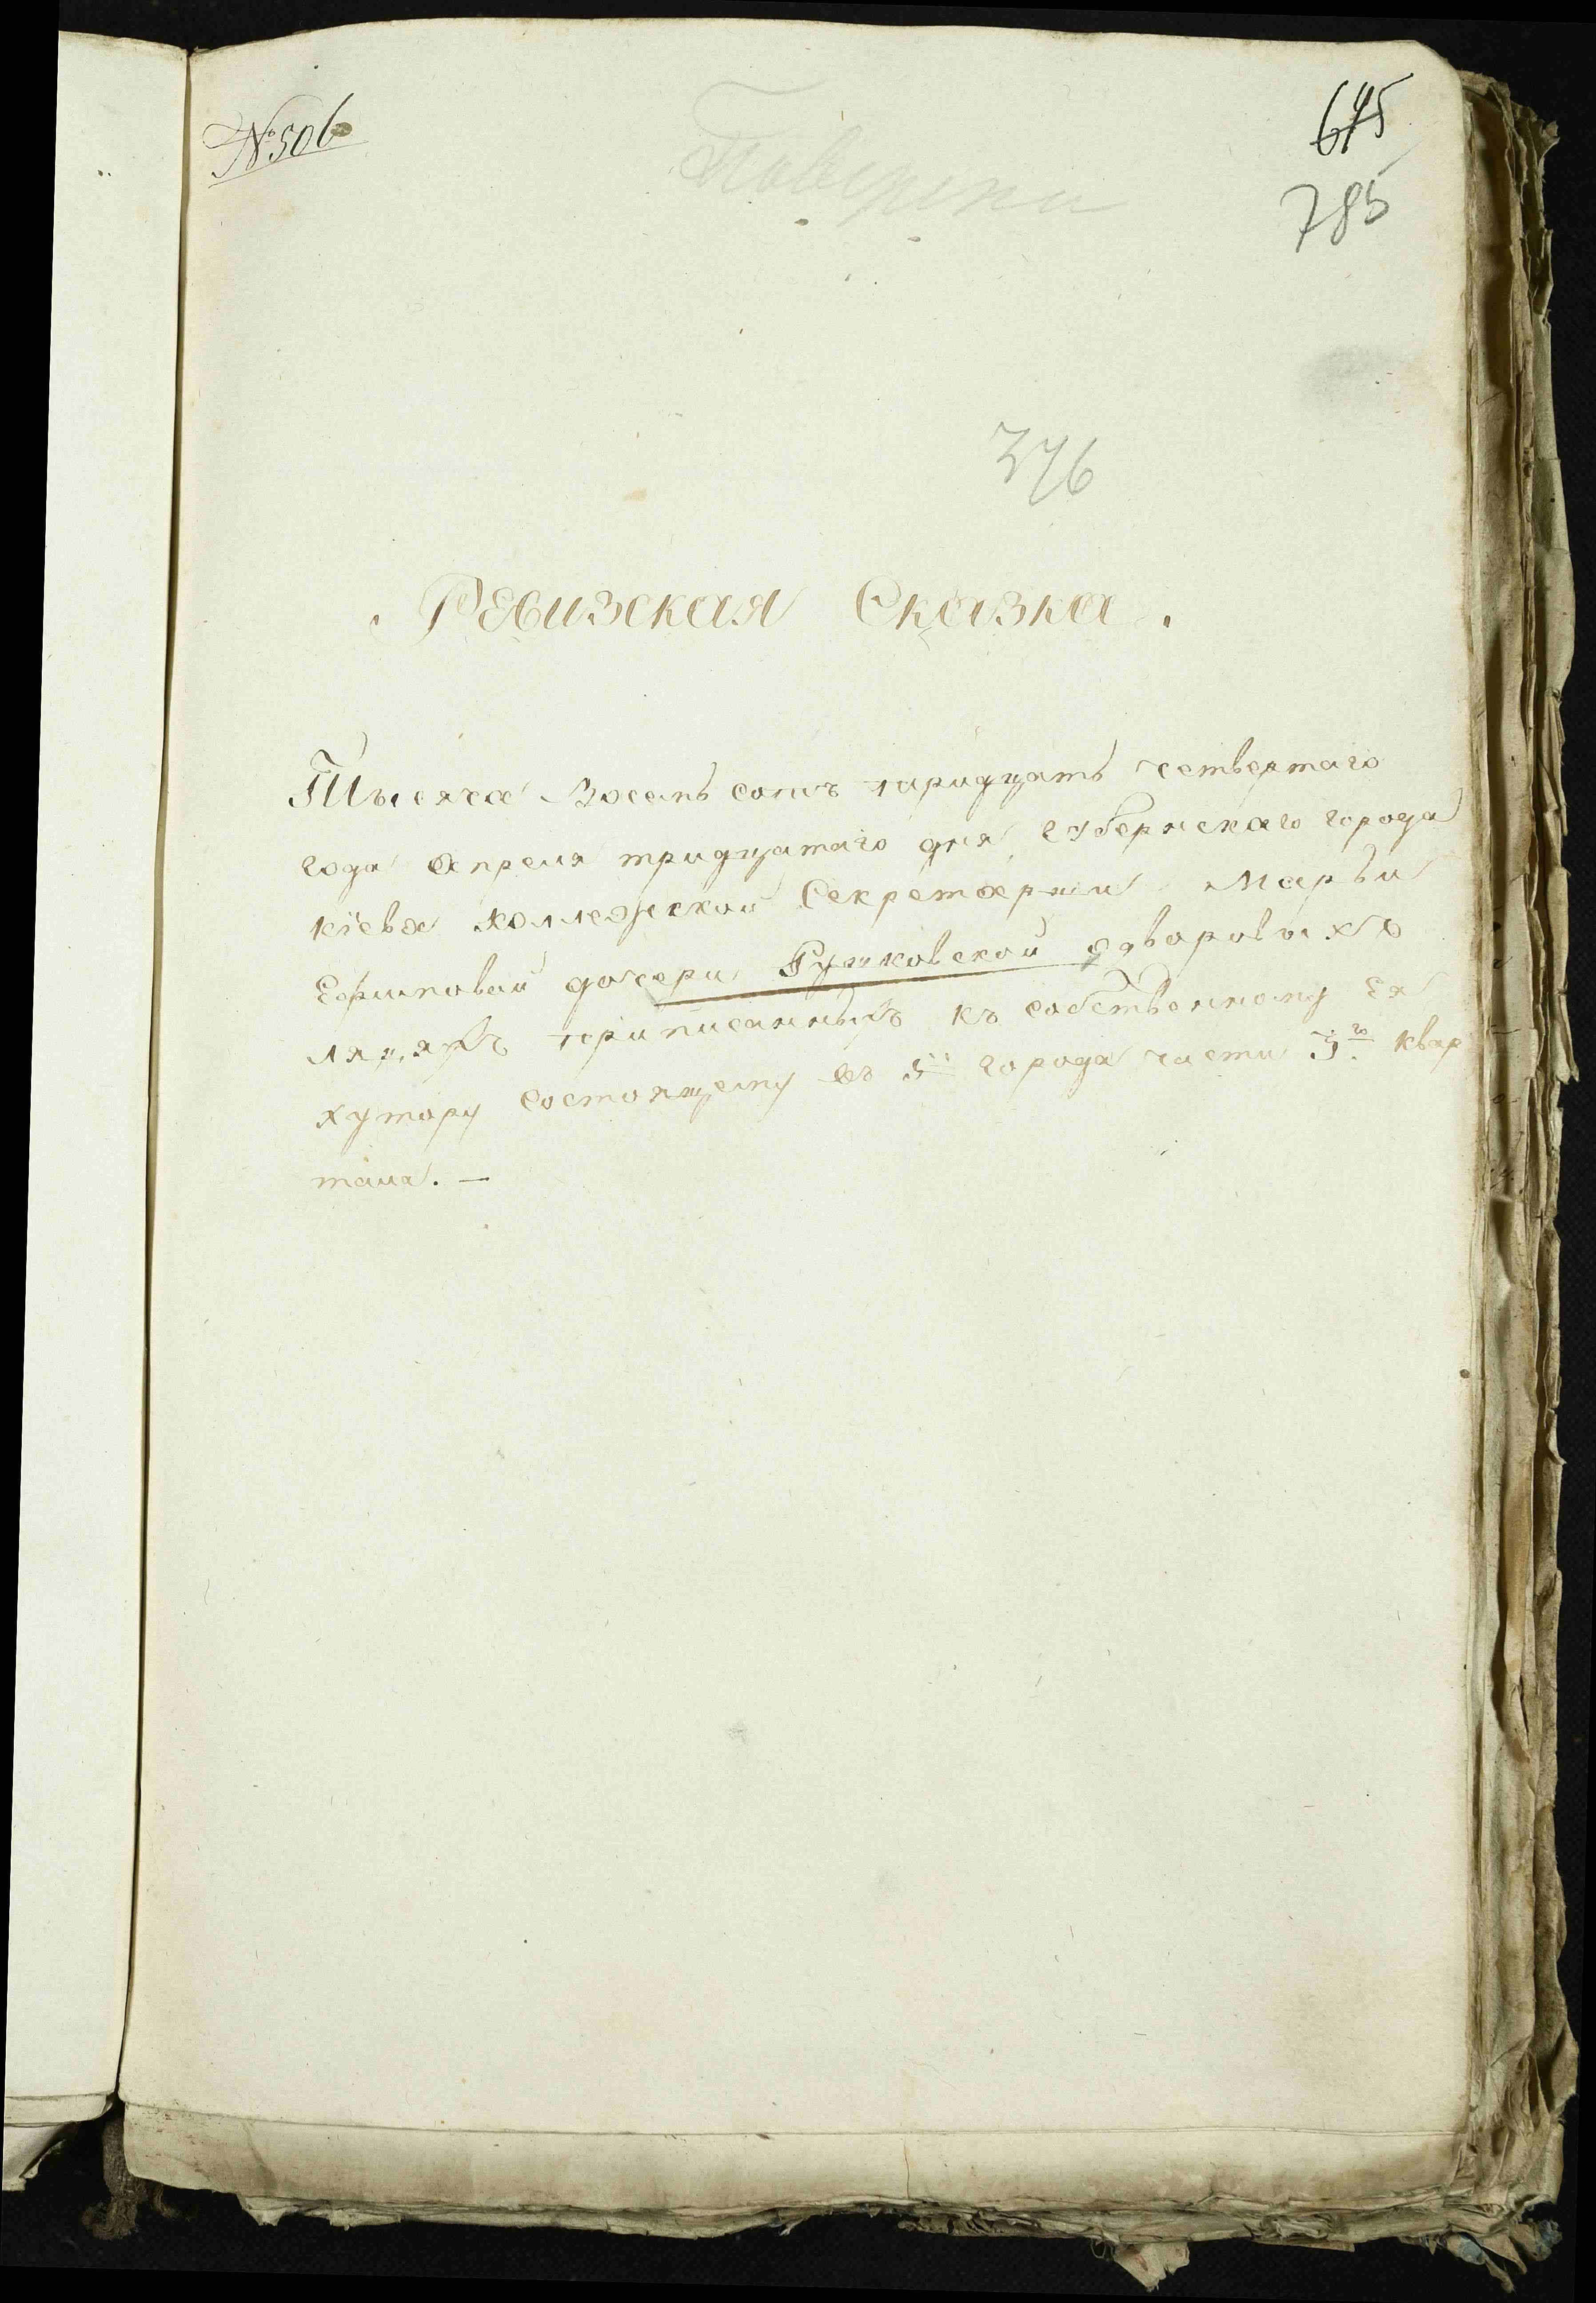 №506
645
785
Поверены
376
Ревизская Сказка.
Тысяча Восемь сотъ тридцать четвертаго
года апреля тридцатаго дня, губернскаго города
кіева коллежской Секретарши Марьи
Ефимовой дочери Румковской о дворовыхъ
людяхъ приписанныхъ къ собственному Ея
хутору состоящему въ 5й города части 3го квар
тала. —